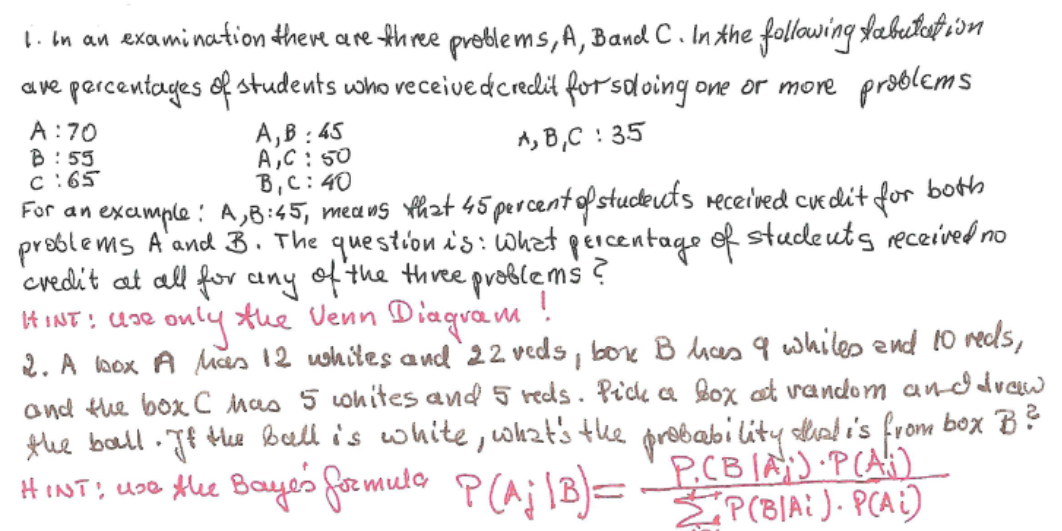 1. In an examination there are three problems, A, B and C. In the following tabulation
are percentages of students who received credit for solving one or more problems
A : 70 A, B : 45 A, B, C : 35
B : 55 A, C : 50
C : 65 B, C : 40
For an example : A, B:45, means that 45 percent of students received credit for both
problems A and B. The question is: What percentage of students received no
credit at all for any of the three problems ?
HINT: use only the Venn Diagram !
2. A box A has 12 whites and 22 reds, box B has 9 whites and 10 reds,
and the box C has 5 whites and 5 reds. Pick a box at random and draw
the ball. If the ball is white, what's the probability that is from box B?
HINT: use the Baye's formula P(Aj|B) = P(B|Aj)·P(Aj) / Σ P(B|Ai)·P(Ai)